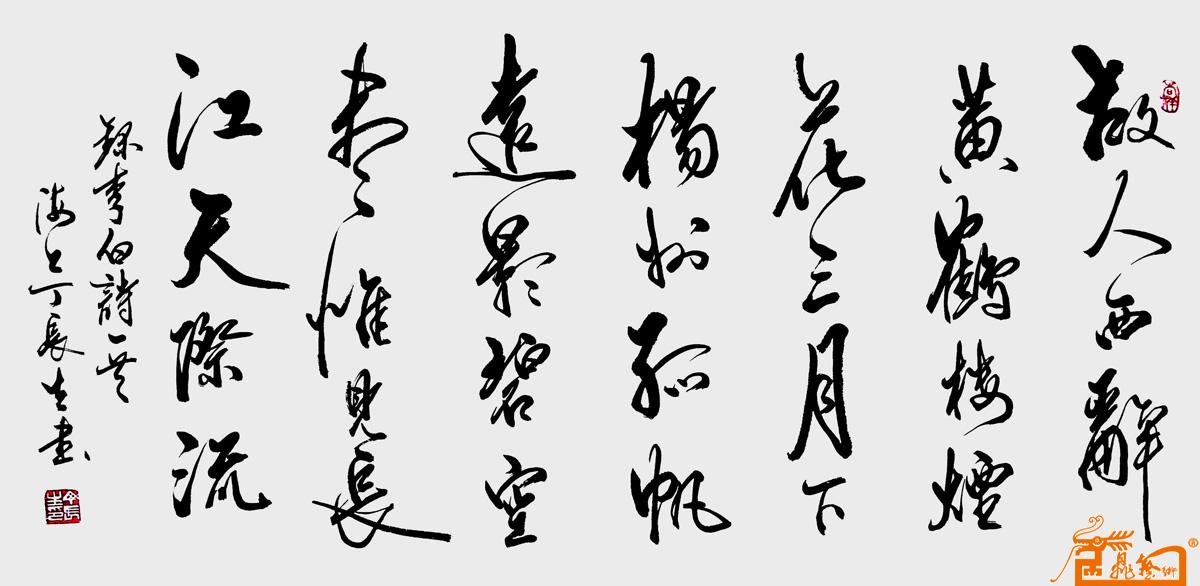 故人西辭
黄鶴楼煙
花三月下
楊州孤帆
遠影碧空
盡惟見長
江天際流
録李白詩一首
海上丁長生書
鼎藝術